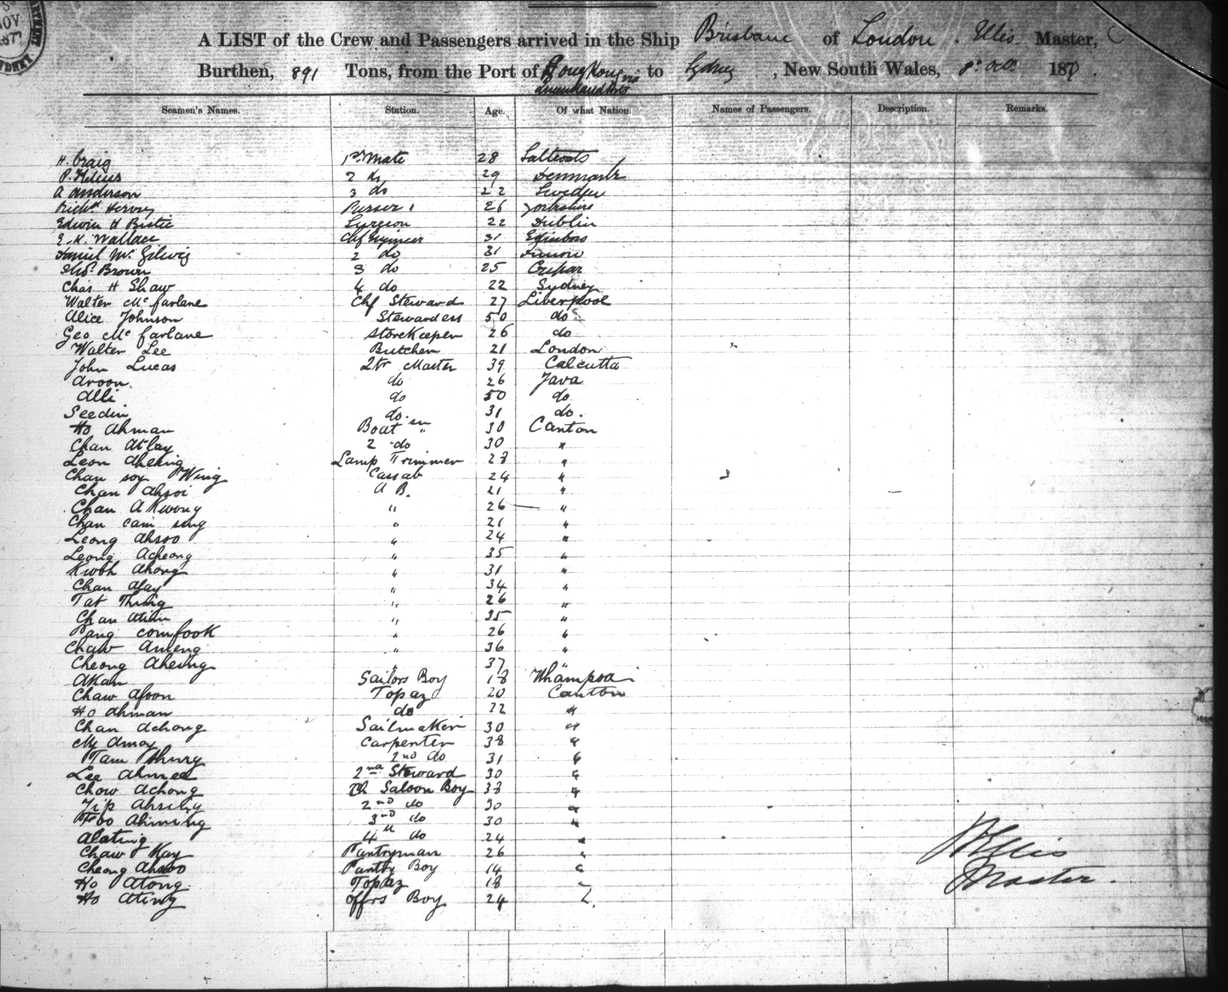 NOV
187
A LIST of the Crew and Passengers arrived in the Ship Brisbane of London . Ellis Master,
Burthen, 891 Tons, from the Port of Hong Kong to Sydney , New South Wales, 187 .
Seamen's Names. Station. Age. Of what Nation. Names of Passengers. Description. Remarks.
H. Craig 1st Mate 28 Saltcoats
2 do 29 Denmark
A Anderson 3 do 22 Sweden
Richd. Purser 26 Yorkshire
Edwin H Surgeon 22 Dublin
E. K. Wallace Chf Engineer 31
2 do 31
Brown 3 do 25 Cupar
Chas H Shaw 4 do 22 Sydney
Walter McFarlane Chf Steward 27 Liverpool
Alice Johnson Stewardess 50 do
Geo McFarlane Storekeeper 26 do
Walter Lee Butcher 21 London
John Lucas Qtr Master 39 Calcutta
Aroon do 26 Java
Alli do 50 do
Seedin do. 31 do.
Ho Ahman Boat " 30 Canton
Chan Atlay 2 do 30 "
Leon Lamp Trimmer 28 "
Chan Soy Wing Cassab 24 "
Chan Ahsoi A B. 21 "
Chan A Kwong " 26 "
Chan Cam Sing " 21 "
Leong Ahsoo " 24 "
Leong Acheong " 35 "
Ahong " 31 "
Chan Afay " 34 "
Tat Thing " 26 "
Chan " 35 "
Pang Comfook " 26 "
Chaw Anleng " 36 "
Cheong Aheung " 37 "
Akan Sailors Boy 18 Whampoa
Chaw Afoon Topaz 20 Canton
Ho Ahman do 22 "
Chan Achong Sailmaker 30 "
Amoy Carpenter 38 "
Tam 2nd do 31 "
Lee Ahmee 2nd Steward 30 "
Chow Achong Saloon Boy 38 "
Yip 2nd do 30 "
Foo Ahming 3rd do 30 "
Alating 4th do 24 "
Chaw Kay Pantryman 26 "
Cheong Ahsoo Pantry Boy 14 "
Ho Atong Topaz 18 "
Ho Ating Offrs Boy 24 "
Ellis
Master.